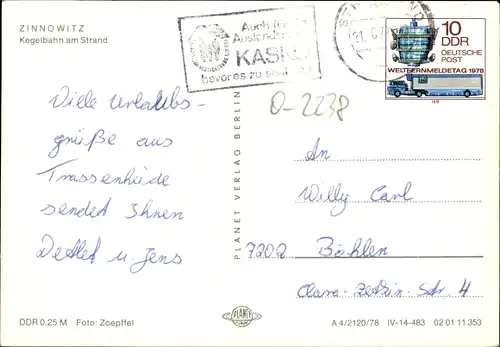 ZINNOWITZ
Kegelbahn am Strand
Auch für
Auslands
KASKO
bevor es zu spät ist
21. 6. 7
10
DDR
DEUTSCHE
POST
WELTFERNMELDETAG 1978
1978
O-2238
Viele Urlaubs-
grüße aus
Trassenheide
sendet Ihnen
Detlef u. Jens
PLANET VERLAG BERLIN
An
Willy Carl
7202 Böhlen
Clara-Zetkin-Str. 4
DDR 0,25 M Foto: Zoepffel
PLANET
A 4/2120/78 IV-14-483 02 01 11 353